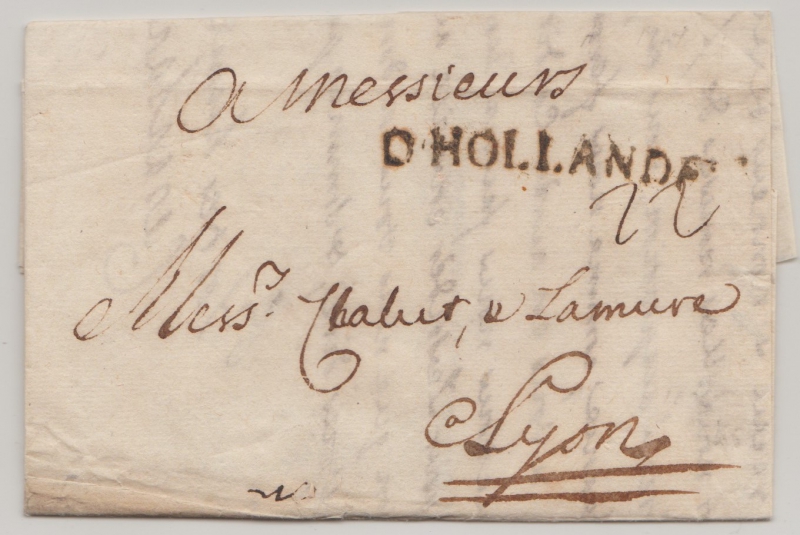 A Messieurs
D'HOLLANDE
22
Mess.rs Chalut, & Lamure
a Lyon